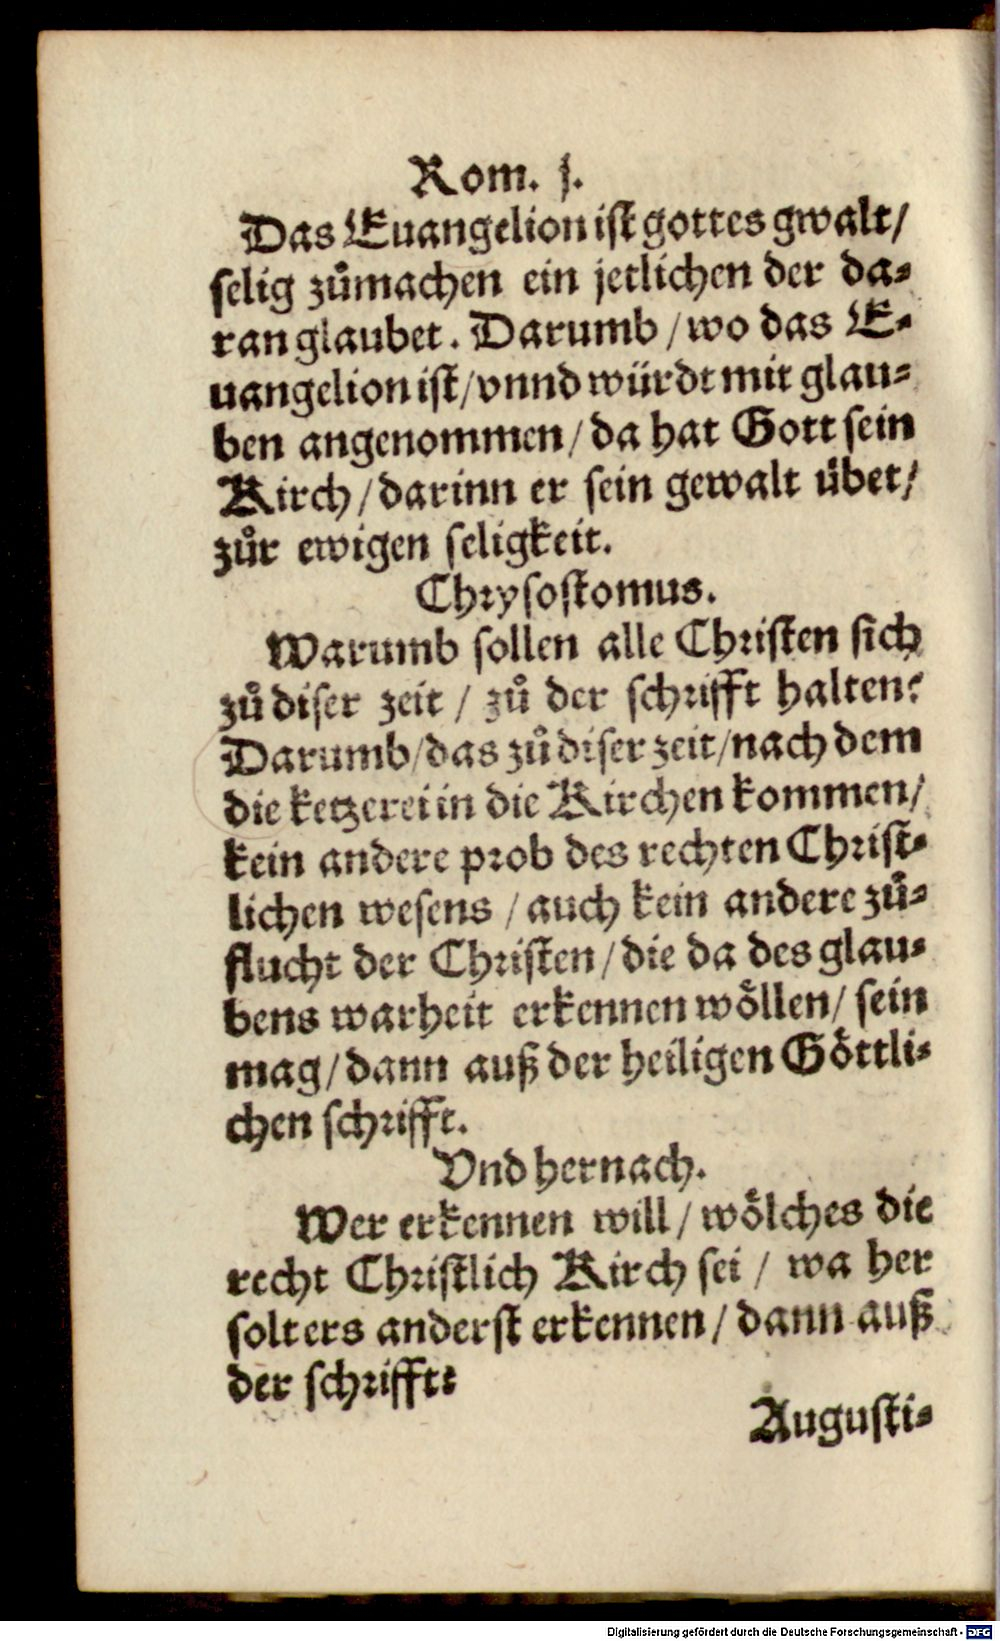 Rom. j.
Das Euangelion ist gottes gwalt/
selig zůmachen ein jetlichen der da⸗
ran glaubet. Darumb/wo das E⸗
uangelion ist/vnnd würdt mit glau⸗
ben angenommen/da hat Gott sein
Kirch/darinn er sein gewalt übet/
zůr ewigen seligkeit.
Chrysostomus.
Warumb sollen alle Christen sich
zů diser zeit/ zů der schrifft halten?
Darumb/das zů diser zeit/nach dem
die ketzerei in die Kirchen kommen/
kein andere prob des rechten Christ⸗
lichen wesens/auch kein andere zů⸗
flucht der Christen/die da des glau⸗
bens warheit erkennen wöllen/ sein
mag/dann auß der heiligen Göttli⸗
chen schrifft.
Vnd hernach.
Wer erkennen will/wölches die
recht Christlich Kirch sei/ wa her
solt ers anderst erkennen/dann auß
der schrifft?
Augusti⸗
Digitalisierung gefördert durch die Deutsche Forschungsgemeinschaft - DFG